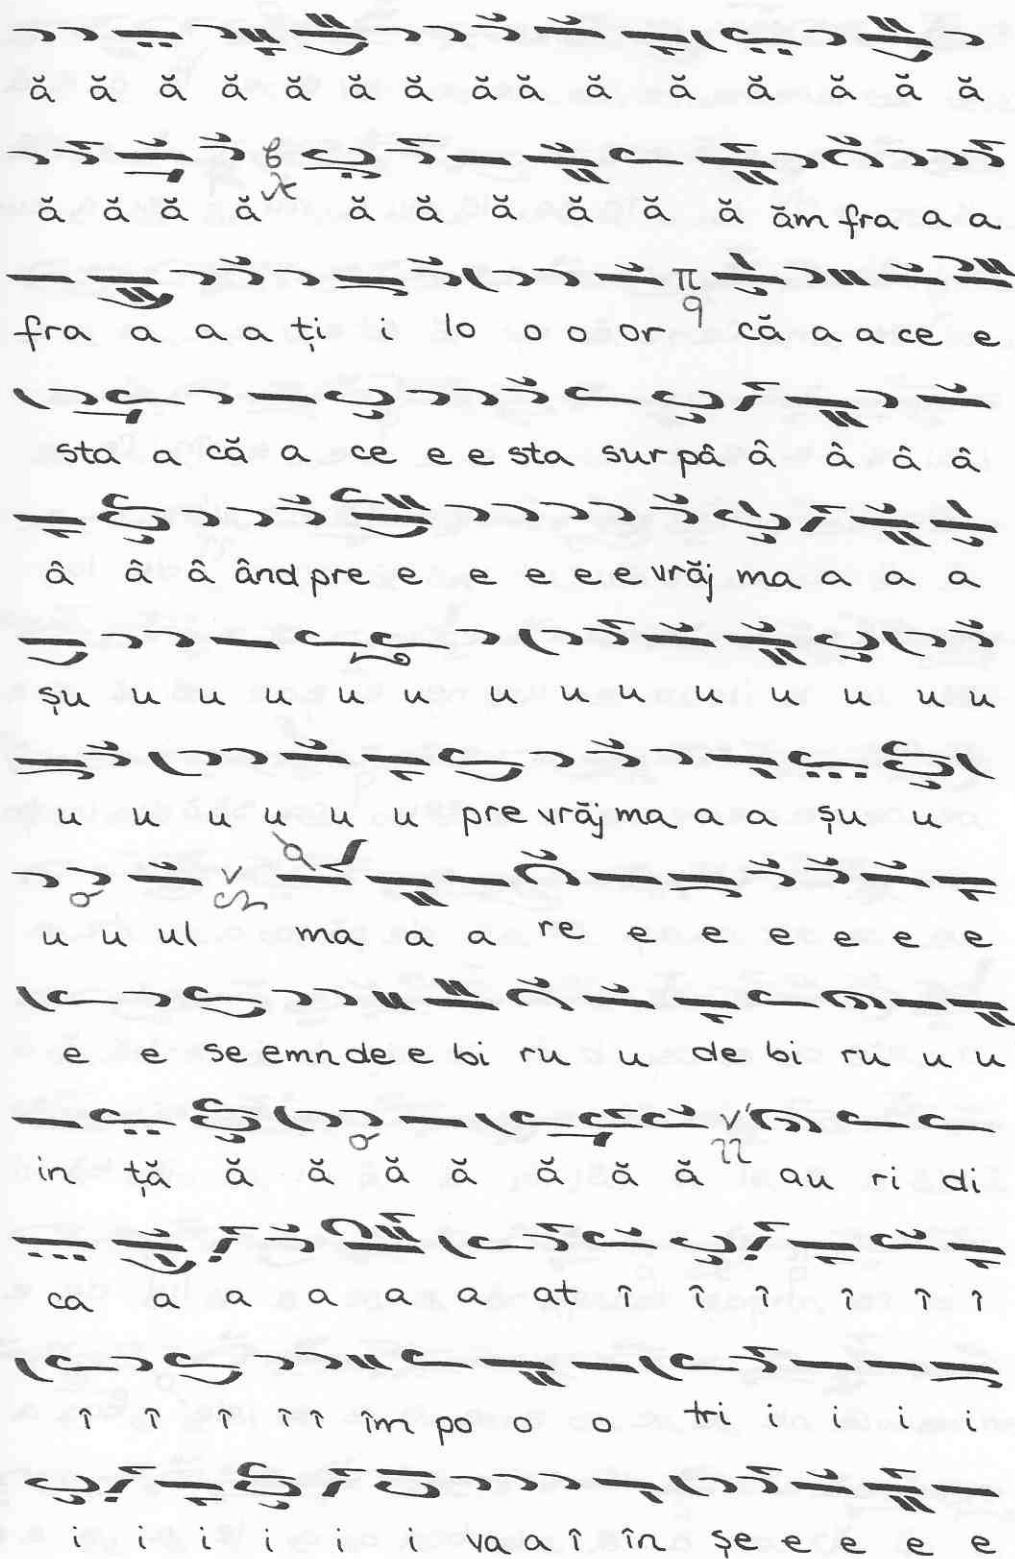 ă ă ă ă ă ă ă ă ă ă ă ă ă ă ă
ă ă ă ă ă ă ă ă ă ă ăm fra a a
π q
fra a a a ți i lo o o or că a a ce e
sta a că a ce e e sta sur pâ â â â â
â â â ând pre e e e e e vrăj ma a a a
șu u u u u u u u u u u u u u
u u u u u u pre vrăj ma a a șu u
u u ul ma a a re e e e e e e
e e se e mn de e e bi ru u u de bi ru u u
in ță ă ă ă ă ă ă ă au ri di
ca a a a a a at î î î î î î
î î î î î îm po o o tri i i i i
i i i i i i va a î în șe e e e e